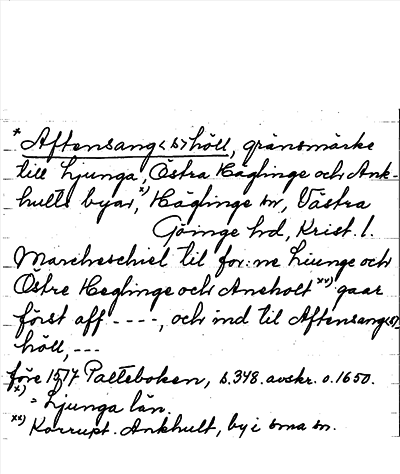 * Aftensang<s>höll, gränsmärke
till Ljunga, Östra Häglinge och Ank-
hults byar,x) Häglinge sn, Västra
Göinge hd, Krist. l.
Marcheschiel til for:ne Liunge och
Östre Heglinge och Ancholt xx) gaar
först aff ----, och ind til Aftensang<s>
höll, ---
före 1577 Palteboken, s. 348. avskr. o. 1650.
x) = Ljunga län.
xx) Korrupt. Ankhult, by i sma sn.